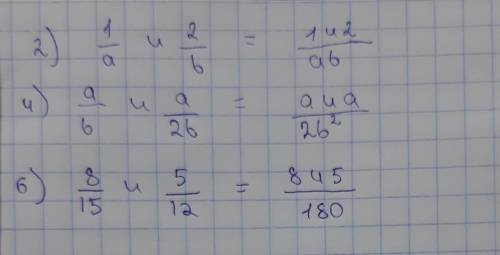 2) 1/a и 2/b = 1 и 2/ab
4) a/b и a/2b = a и a/2b²
6) 8/15 и 5/12 = 8 и 5/180